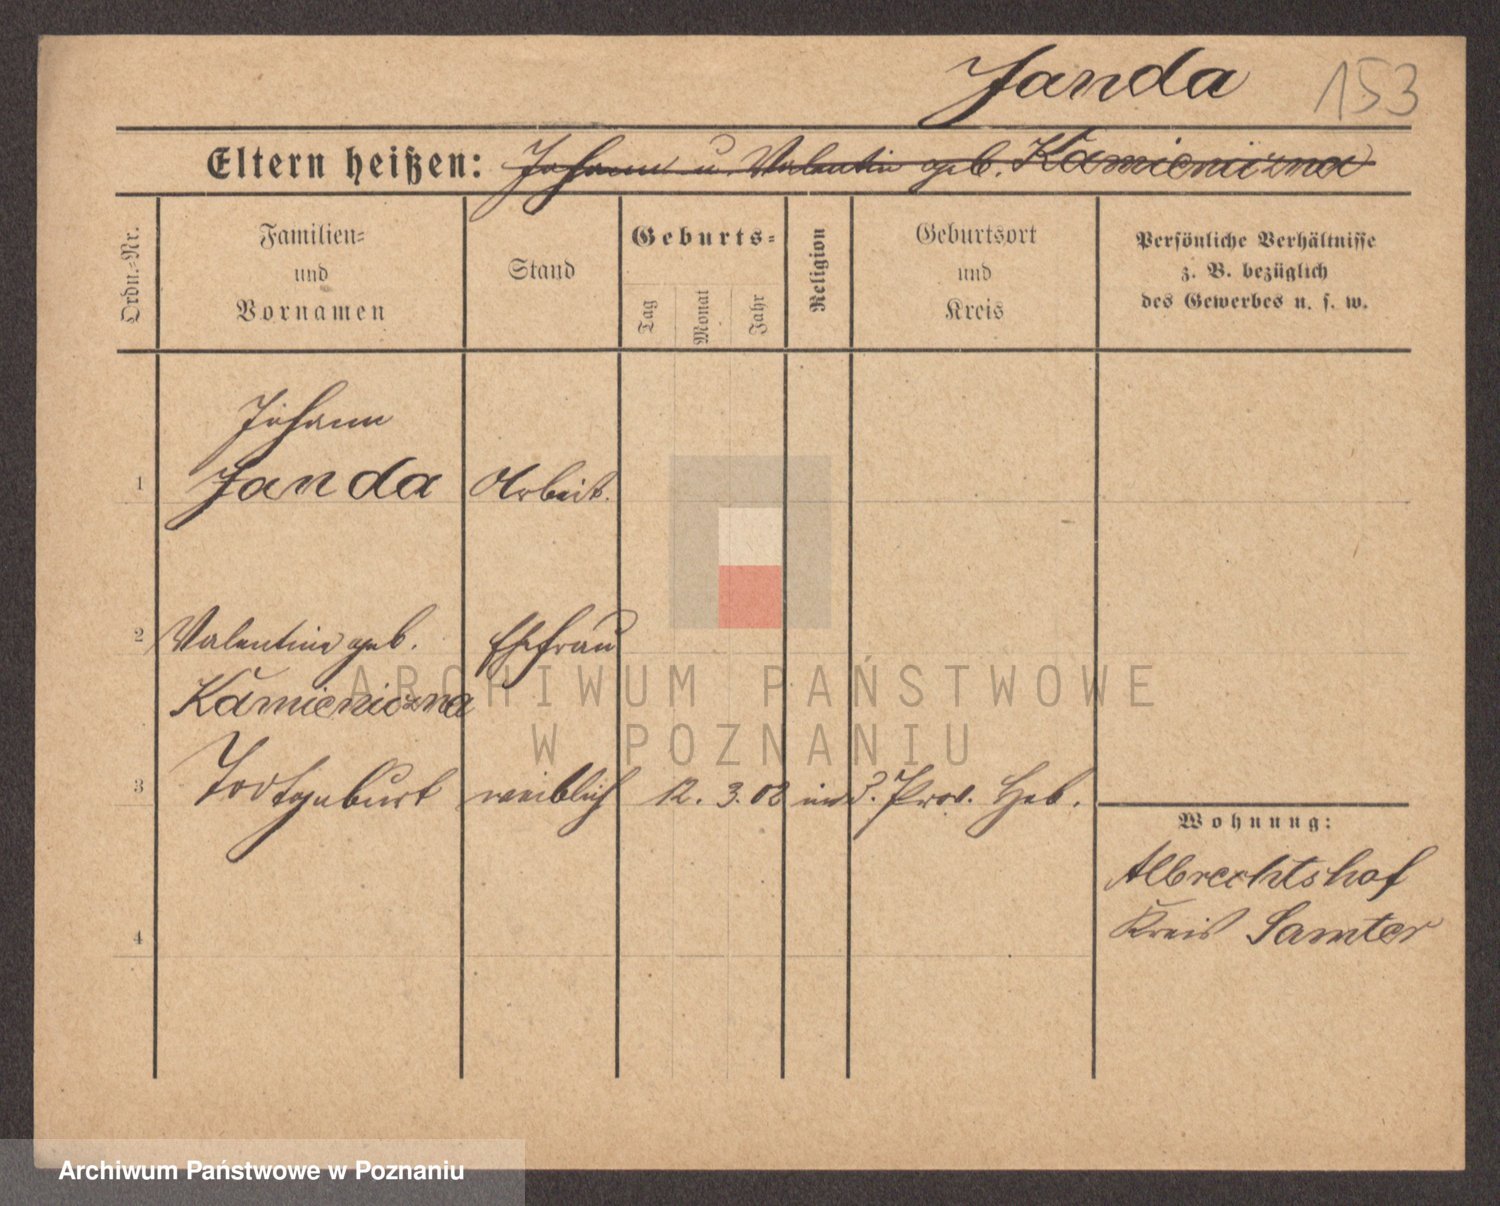 Janda 153
Eltern heißen: Johann u. Valentin geb. Kamieniczna
Ordn.=Nr.
Familien=
und
Vornamen
Stand
Geburts=
Tag
Monat
Jahr
Religion
Geburtsort
und
Kreis
Persönliche Verhältnisse
z. B. bezüglich
des Gewerbes u. s. w.
Johann
1 Janda Arbeit.
2 Valentine geb. Ehefrau
Kamieniczna
3 Todtgeburt weiblich 12. 3. 08 in d. Prov. Heb.
Wohnung:
Albrechtshof
Kreis Samter
4
ARCHIWUM PAŃSTWOWE
W POZNANIU
Archiwum Państwowe w Poznaniu